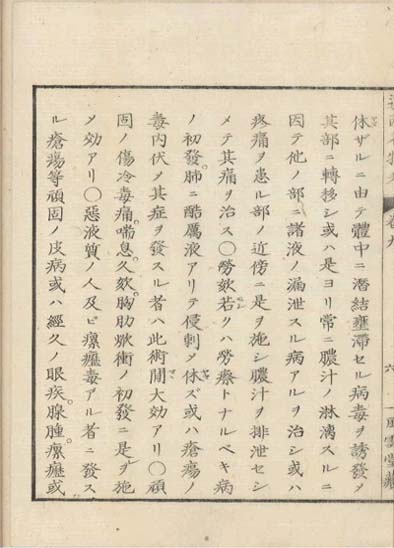 休ザルニ由テ體中ニ潜結壅滞セル病毒ヲ誘發メ
其部ニ轉移シ或ハ是ヨリ常ニ膿汁ノ淋漓スルニ
因テ他ノ部ニ諸液ノ漏泄スル病アルヲ治シ或ハ
疼痛ヲ患ル部ノ近傍ニ是ヲ施シ膿汁ヲ排泄セシ
メテ其痛ヲ治ス〇勞欬若クハ勞瘵トナルベキ病
ノ初發。肺ニ酷厲液アリテ侵刺メ休ズ或ハ瘡瘍ノ
毒内伏メ其症ヲ發スル者ハ此術間大効アリ〇頑
固ノ傷冷毒痛。喘息。久欬。胸肋焮衝ノ初發ニ是ヲ施
メ効アリ〇惡液質ノ人及ビ瘰癧毒アル者ニ發ス
ル瘡瘍等頑固ノ皮病或ハ經久ノ眼疾。腺腫瘰癧或
六
風雲堂藏